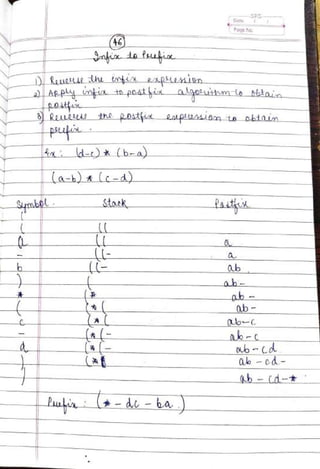 Date / /
Page No.
46
Infix to Prefix
1) Reverse the infix expression
2) Apply infix to postfix algorithm to obtain
postfix
3) Reverse the postfix expression to obtain
prefix.
Ex: (d-c) * (b-a)
(a-b) * (c-d)
Symbol. Stack Postfix
( ((
a (( a
- ((- a
b ((- ab
) ( ab-
* (* ab-
( (*( ab-
c (*( ab-c
- (*(- ab-c
d (*(- ab-cd
) (* ab-cd-
) ab-cd-*
Prefix: (*-dc-ba)